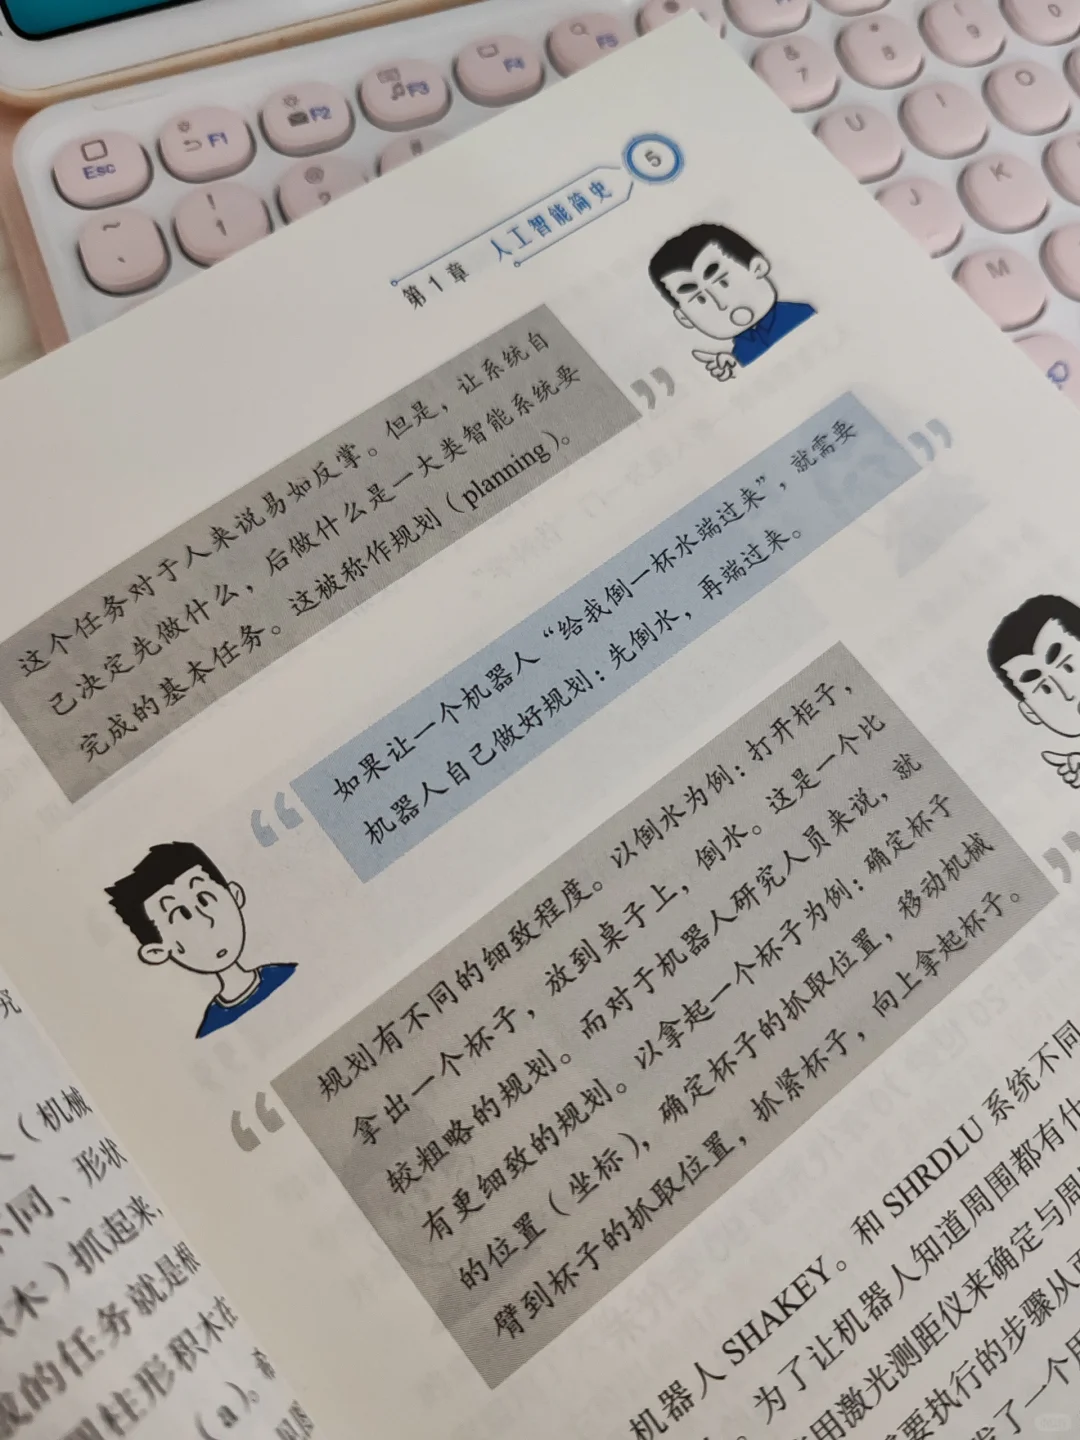 Esc
F1
F2
F3
F4
F5
&
7
*
8
(
9
)
0
~
!
1
@
2
#
U
I
O
J
K
M
第1章 人工智能简史
5
这个任务对于人来说易如反掌。但是，让系统自
己决定先做什么，后做什么是一大类智能系统要
完成的基本任务。这被称作规划（planning）。
如果让一个机器人“给我倒一杯水端过来”，就需要
机器人自己做好规划：先倒水，再端过来。
规划有不同的细致程度。以倒水为例：打开柜子，
拿出一个杯子，放到桌子上，倒水。这是一个比
较粗略的规划。而对于机器人研究人员来说，就
有更细致的规划。以拿起一个杯子为例：确定杯子
的位置（坐标），确定杯子的抓取位置，移动机械
臂到杯子的抓取位置，抓紧杯子，向上拿起杯子。
机器人 SHAKEY。和 SHRDLU 系统不同
。为了让机器人知道周围都有什
用激光测距仪来确定与周
要执行的步骤从
了一个用
究
（机械
不同、形状
木）抓起来，
的任务就是根
圆柱形积木在
（a）。